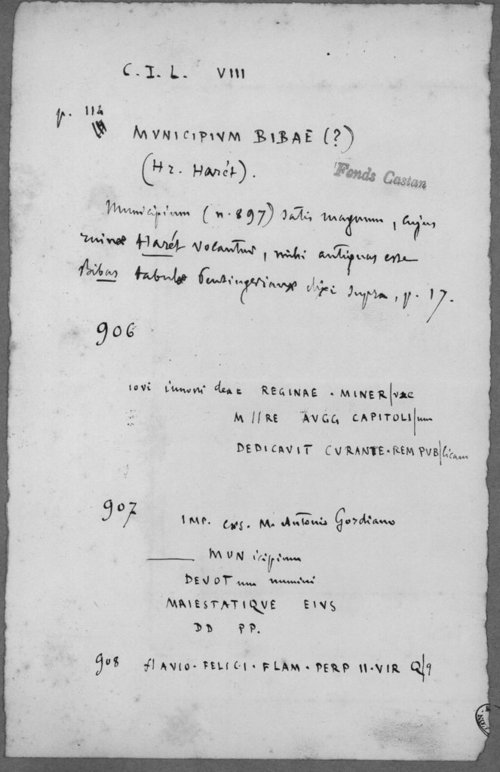 C. I. L. VIII
p. 114
MVNICIPIVM BIBAE (?)
(Hr. Harét).
Fonds Castan
Municipium (n. 897) satis magnum, cujus
ruinae Harét vocantur, mihi antiquas esse
Bibas tabulae Peutingerianae dixi supra, p. 17.
906
iovi iunoni deae REGINAE . MINER/vae
M//RE AVGG CAPITOLI/um
DEDICAVIT CVRANTE . REM PVB/licam
907
IMP. caes. M. Antonio Gordiano
MVNicipium
DEVOTum numini
MAIESTATIQVE EIVS
DD PP.
908 flAVIO . FELICI . FLAM . PERP II . VIR Q/q